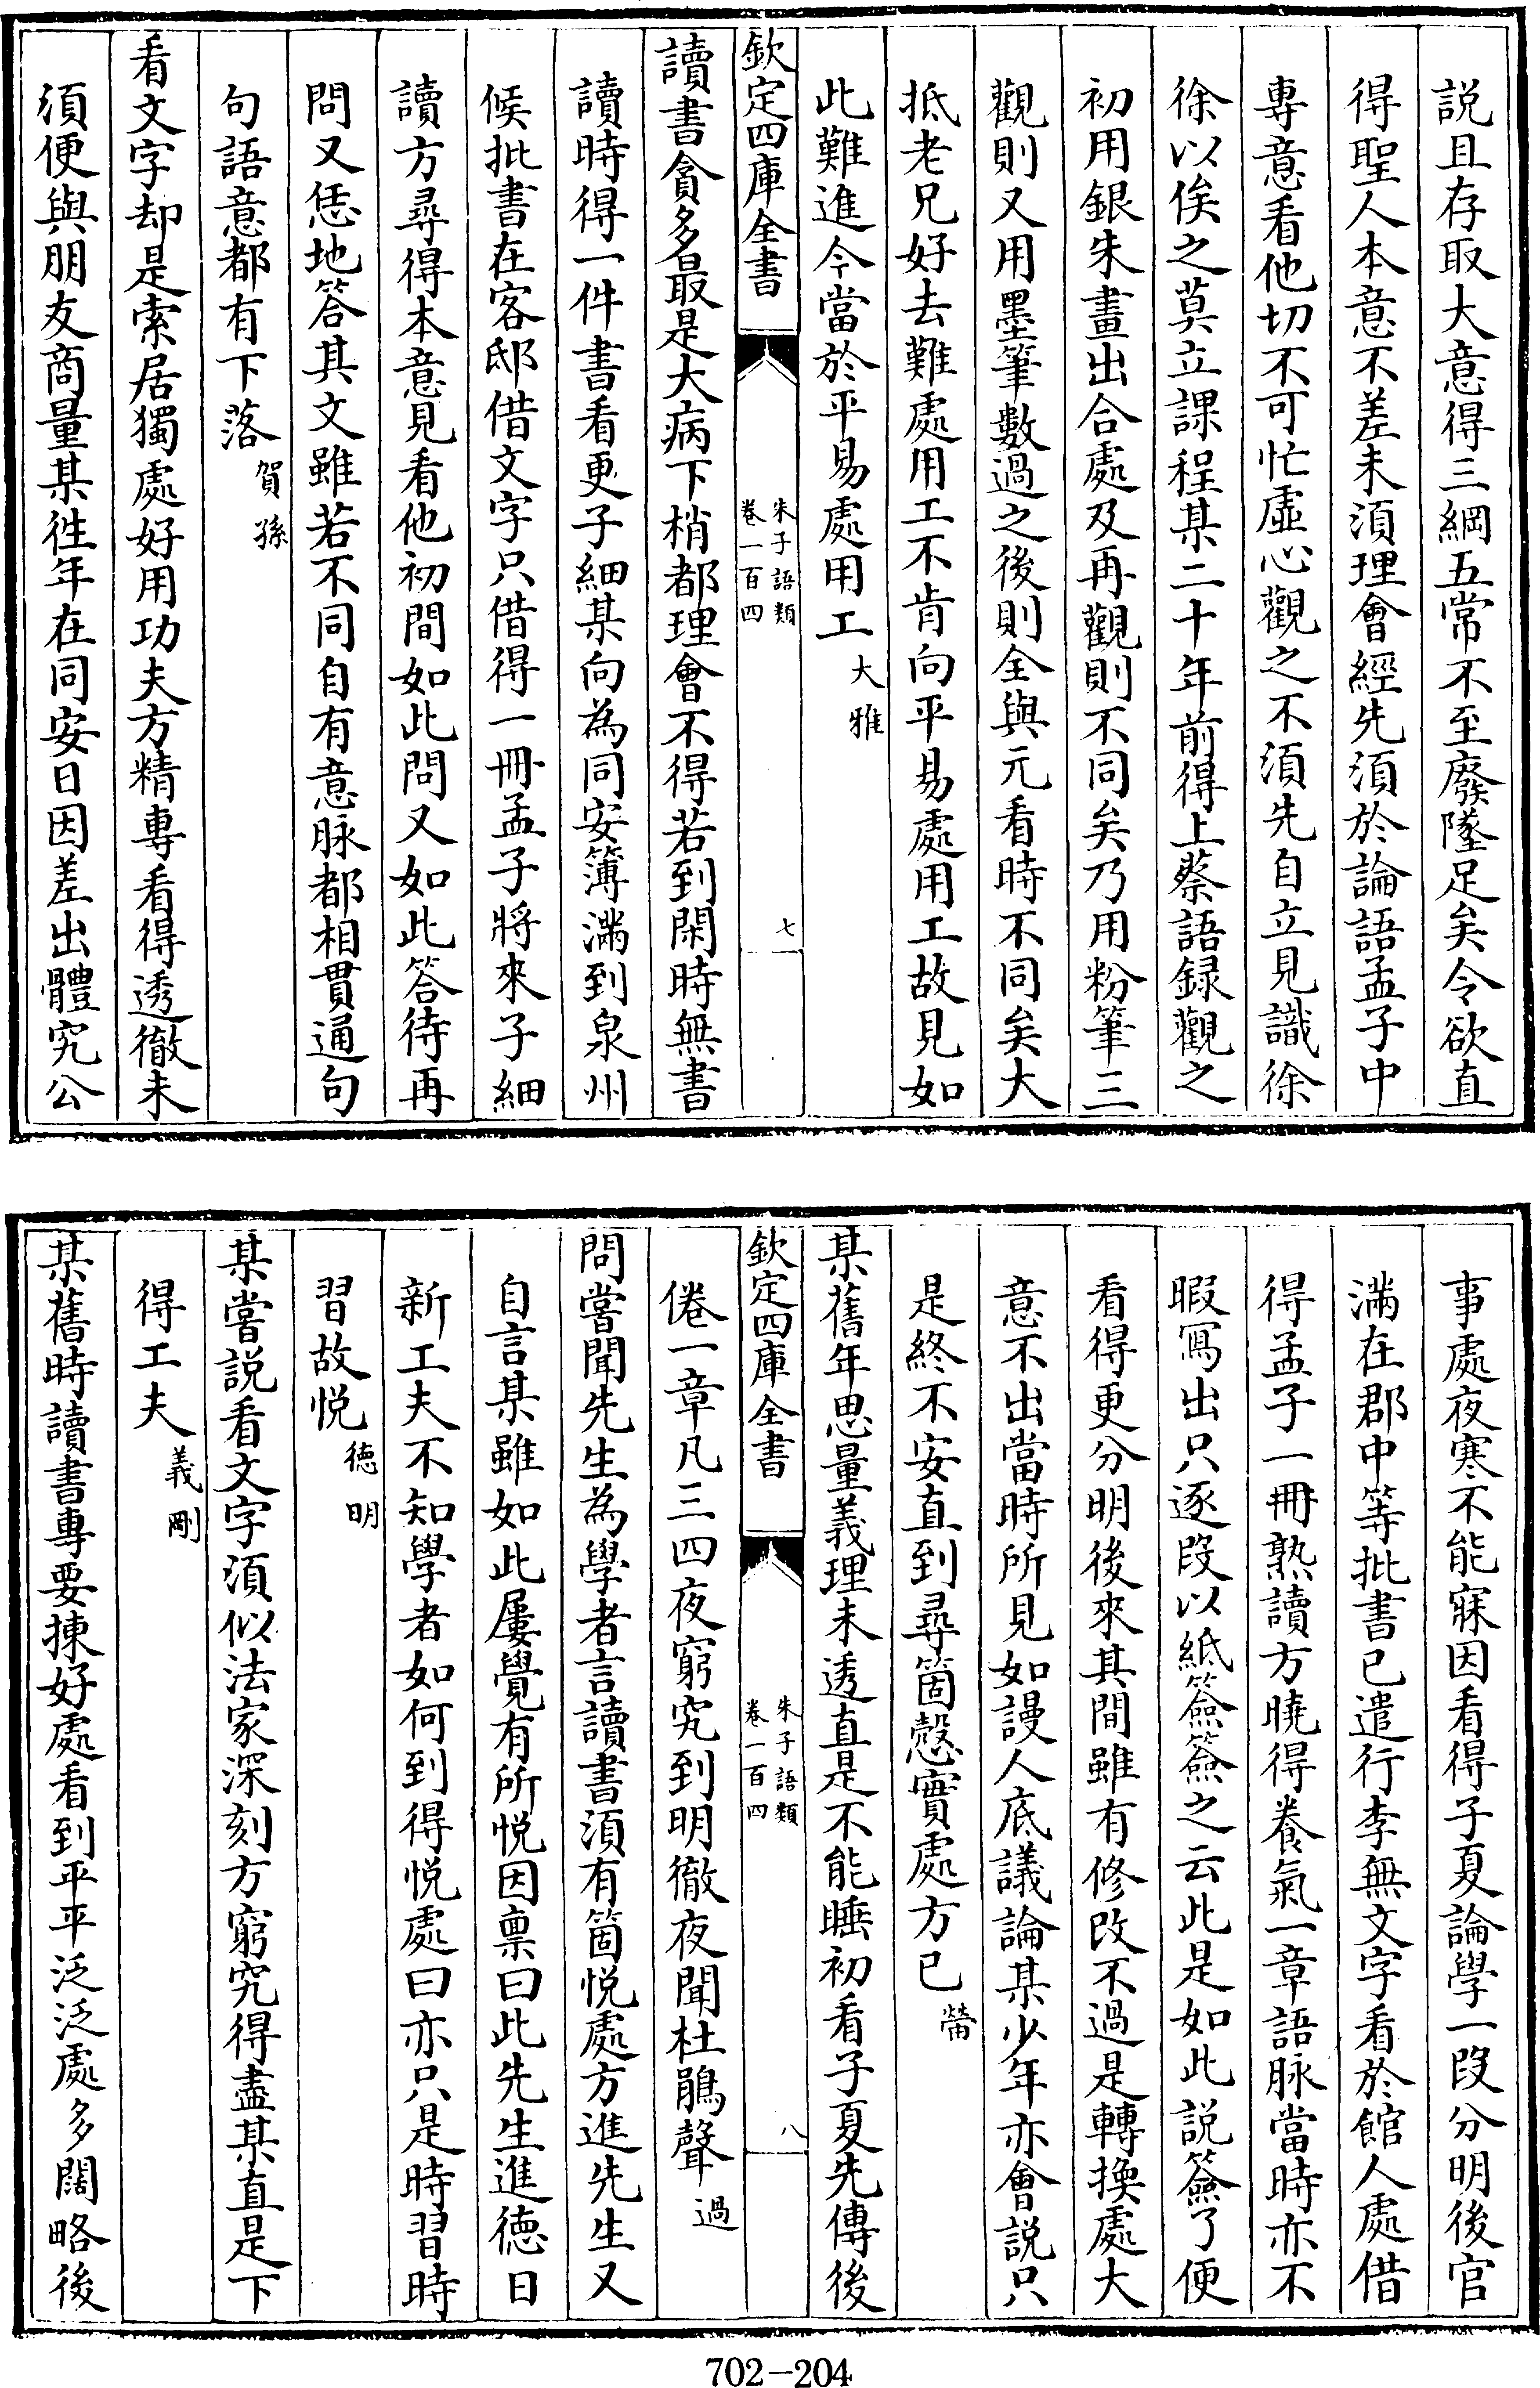 説且存取大意得三綱五常不至廢墜足矣令欲直
得聖人本意不差未湏理會經先湏於論語孟子中
專意看他切不可忙虚心觀之不湏先自立見識徐
徐以俟之莫立課程某二十年前得上蔡語録觀之
初用銀朱畫出合處及再觀則不同矣乃用粉筆三
觀則又用墨筆數過之後則全與元看時不同矣大
抵老兄好去難處用工不肯向平易處用工故見如
此難進今當於平易處用工大雅
欽定四庫全書
朱子語類
卷一百四
七
讀書貪多最是大病下梢都理會不得若到閑時無書
讀時得一件書看更子細某向為同安簿滿到泉州
候批書在客邸借文字只借得一冊孟子將來子細
讀方尋得本意見看他初間如此問又如此答待再
問又恁地答其文雖若不同自有意脉都相貫通句
句語意都有下落賀孫
看文字却是索居獨處好用功夫方精專看得透徹未
湏便與朋友商量某徃年在同安日因差出體究公
事處夜寒不能寐因看得子夏論學一段分明後官
滿在郡中等批書已遣行李無文字看於館人處借
得孟子一冊熟讀方曉得養氣一章語脉當時亦不
暇冩出只逐段以紙簽簽之云此是如此説簽了便
看得更分明後來其間雖有修改不過是轉換處大
意不出當時所見如謾人底議論某少年亦會説只
是終不安直到尋箇慤實處方已㽦
某舊年思量義理未透直是不能睡初看子夏先傳後
欽定四庫全書
朱子語類
卷一百四
八
倦一章凡三四夜窮究到明徹夜聞杜鵑聲過
問嘗聞先生為學者言讀書湏有箇悦處方進先生又
自言某雖如此屢覺有所悦因禀曰此先生進德日
新工夫不知學者如何到得悦處曰亦只是時習時
習故悦德明
某嘗説看文字湏似法家深刻方窮究得盡某直是下
得工夫義剛
某舊時讀書專要揀好處看到平平泛泛處多闊略後
702-204